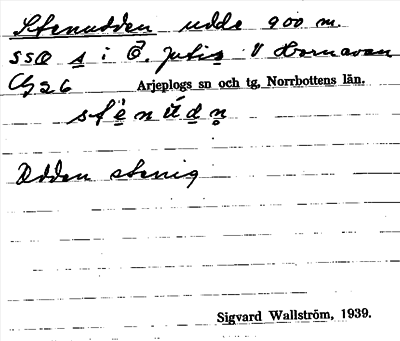 Stenudden udde 900 m.
SSO s i Ö. Jutis V Hornavan
Cg 26 Arjeplogs sn och tg, Norrbottens län.
Udden stenig
Sigvard Wallström, 1939.